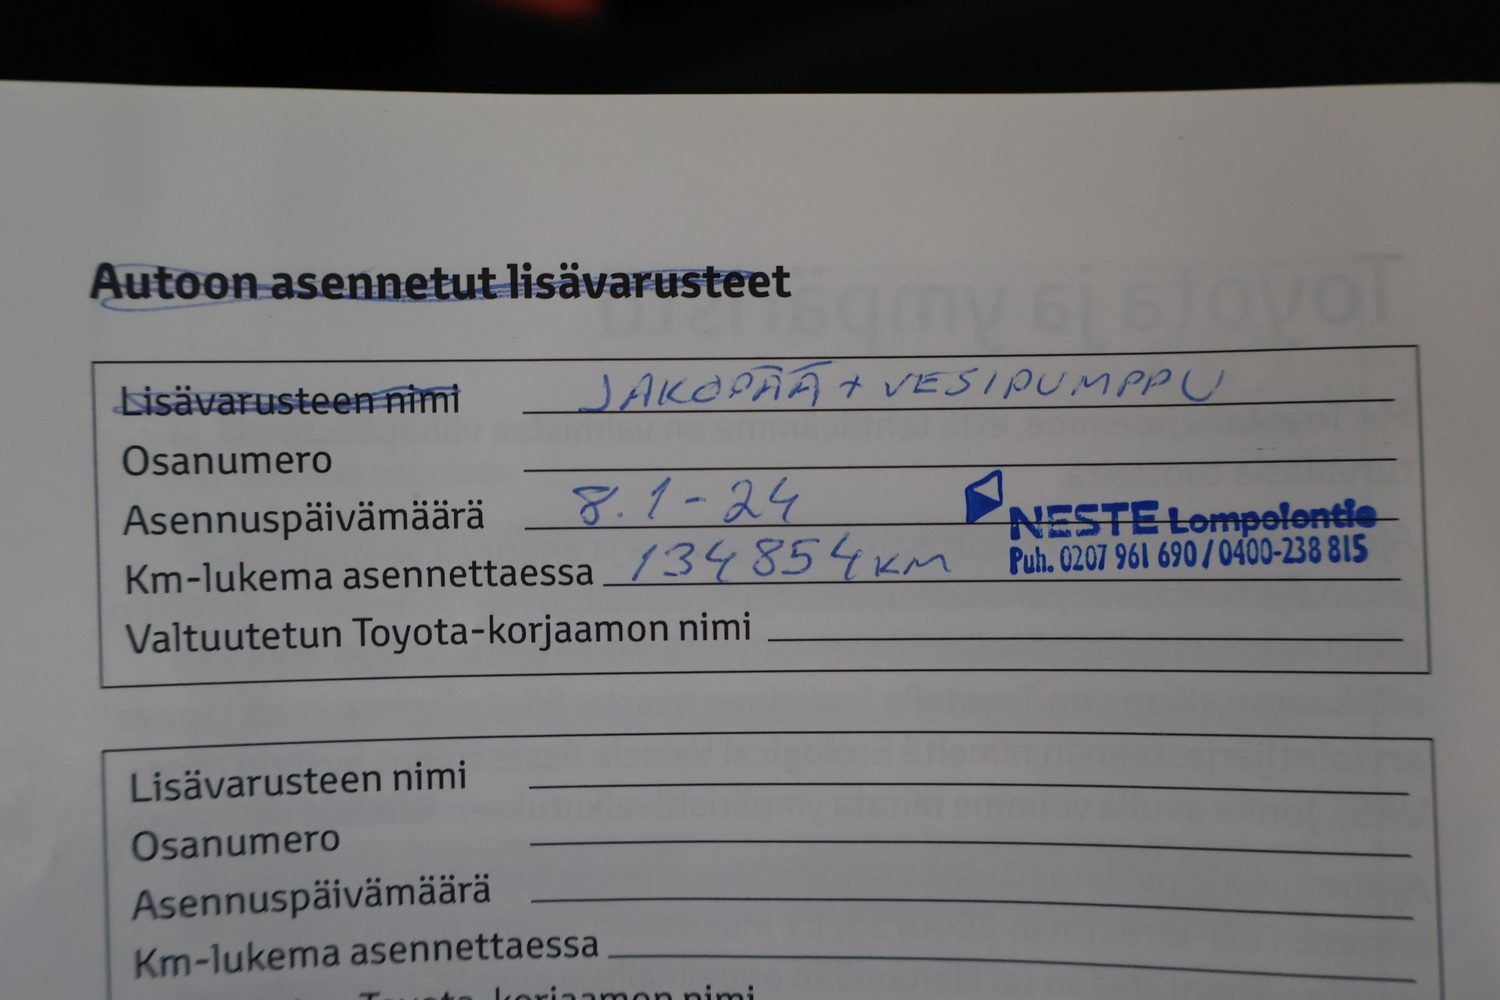 Autoon asennetut lisävarusteet
Lisävarusteen nimi JAKOPÄÄ + VESIPUMPPU
Osanumero
Asennuspäivämäärä 8.1-24
NESTE Lompolontie
Km-lukema asennettaessa 134854 KM
Puh. 0207 961 690 / 0400-238 815
Valtuutetun Toyota-korjaamon nimi
Lisävarusteen nimi
Osanumero
Asennuspäivämäärä
Km-lukema asennettaessa
Toyota-korjaamon nimi